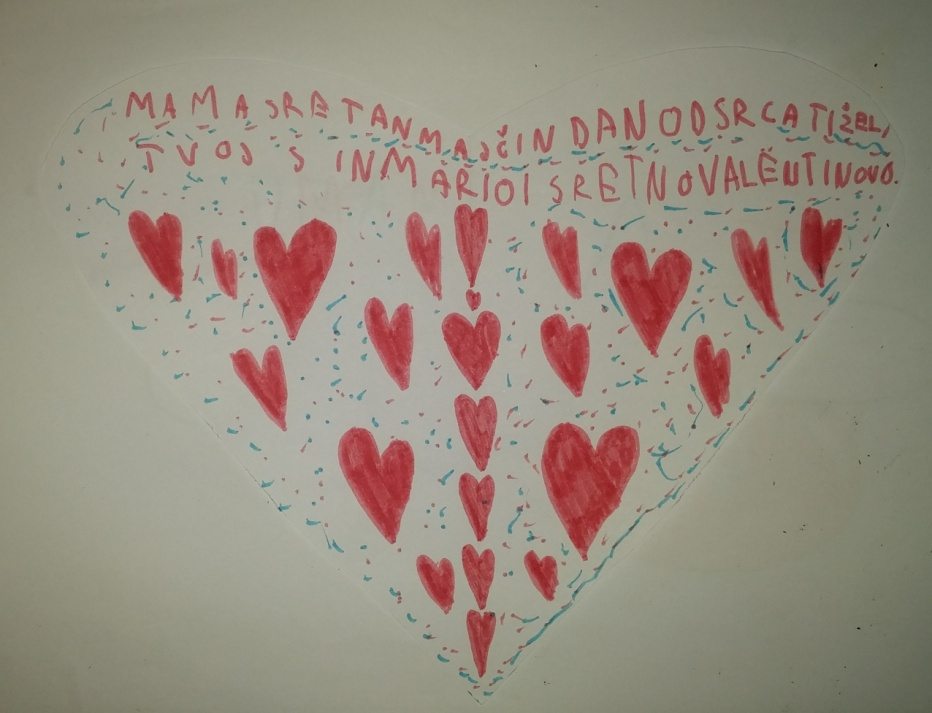 MAMA SRETAN MAJČIN DAN OD SRCA TI ŽELI
TVOJ SIN MARIO I SRETNO VALENTINOVO.